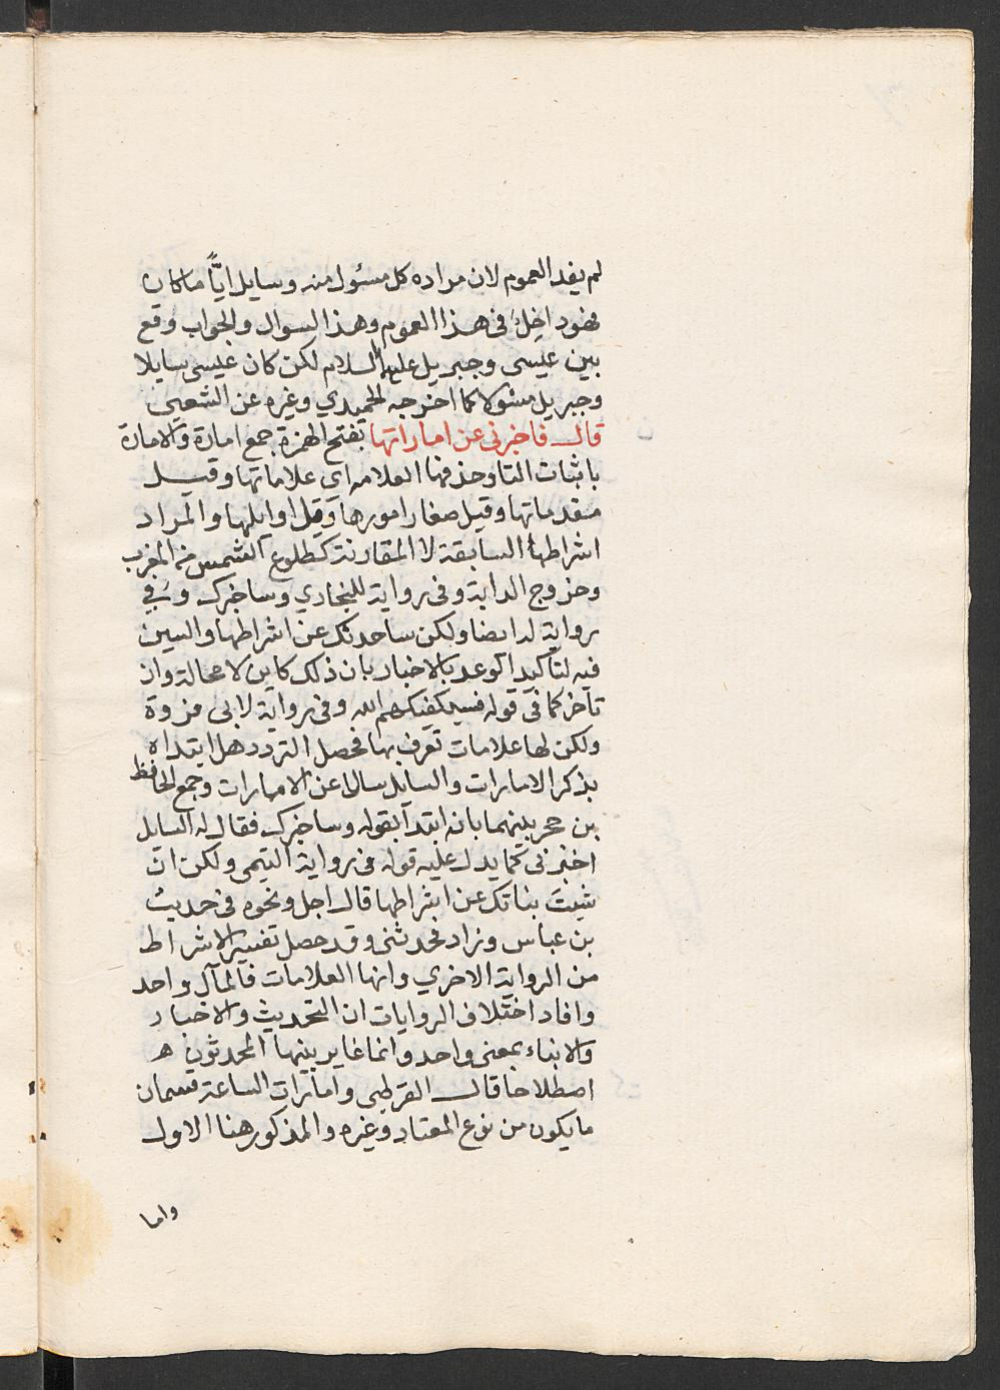 لم يفد العموم لان مراده كل مسئول منه وسايل ايًّا ما كان
فهود اخل في هذا العموم وهذا السوال والجواب وقع
بين عيسى وجبريل عليهما السلام لكن كان عيسى سايلا
وجبريل مسئولا كما اخرجه الحميدي وغيره عن الشعبي
قال فاخبرني عن اماراتها بفتح الهمزة جمع امارة والامارة
باثبات التا وحذفها العلامه اى علاماتها وقيل
مقدماتها وقيل صغار امورها وقيل اوايلها والمراد
اشراطها السابقة لا المقارنة كطلوع الشمس من المغرب
وخروج الدابة وفى رواية للبخاري وساخبرك وفي
رواية له ايضا ولكن ساحدثك عن اشراطها والسين
فيه لتأكيد الوعد بالاخبار بان ذلك كاين لا محالة وان
تاخر كما في قوله فسيكفيكهم الله وفى رواية لابى فروة
ولكن لها علامات تعرف بها فحصل التردد هل ابتداه
بذكر الامارات والسايل ساله عن الامارات وجمع الحافظ
بن حجر بينهما بانه ابتدا بقوله وساخبرك فقال له السايل
اخبرني كما يدل عليه قوله في رواية التيمى ولكن ان
شيت نباتك عن اشراطها قال اجل ونحوه في حديث
بن عباس وزاد فحدثنى وقد حصل تفسير الاشراط
من الرواية الاخري وانها العلامات فالمآل واحد
وافاد اختلاف الروايات ان التحديث والاخبار
والانباء بمعنى واحد وانما غاير بينها المحدثون ه
اصطلاحا قال القرطبى وامارات الساعة قسمان
ما يكون من نوع المعتاد وغيره والمذكور هنا الاول
واما